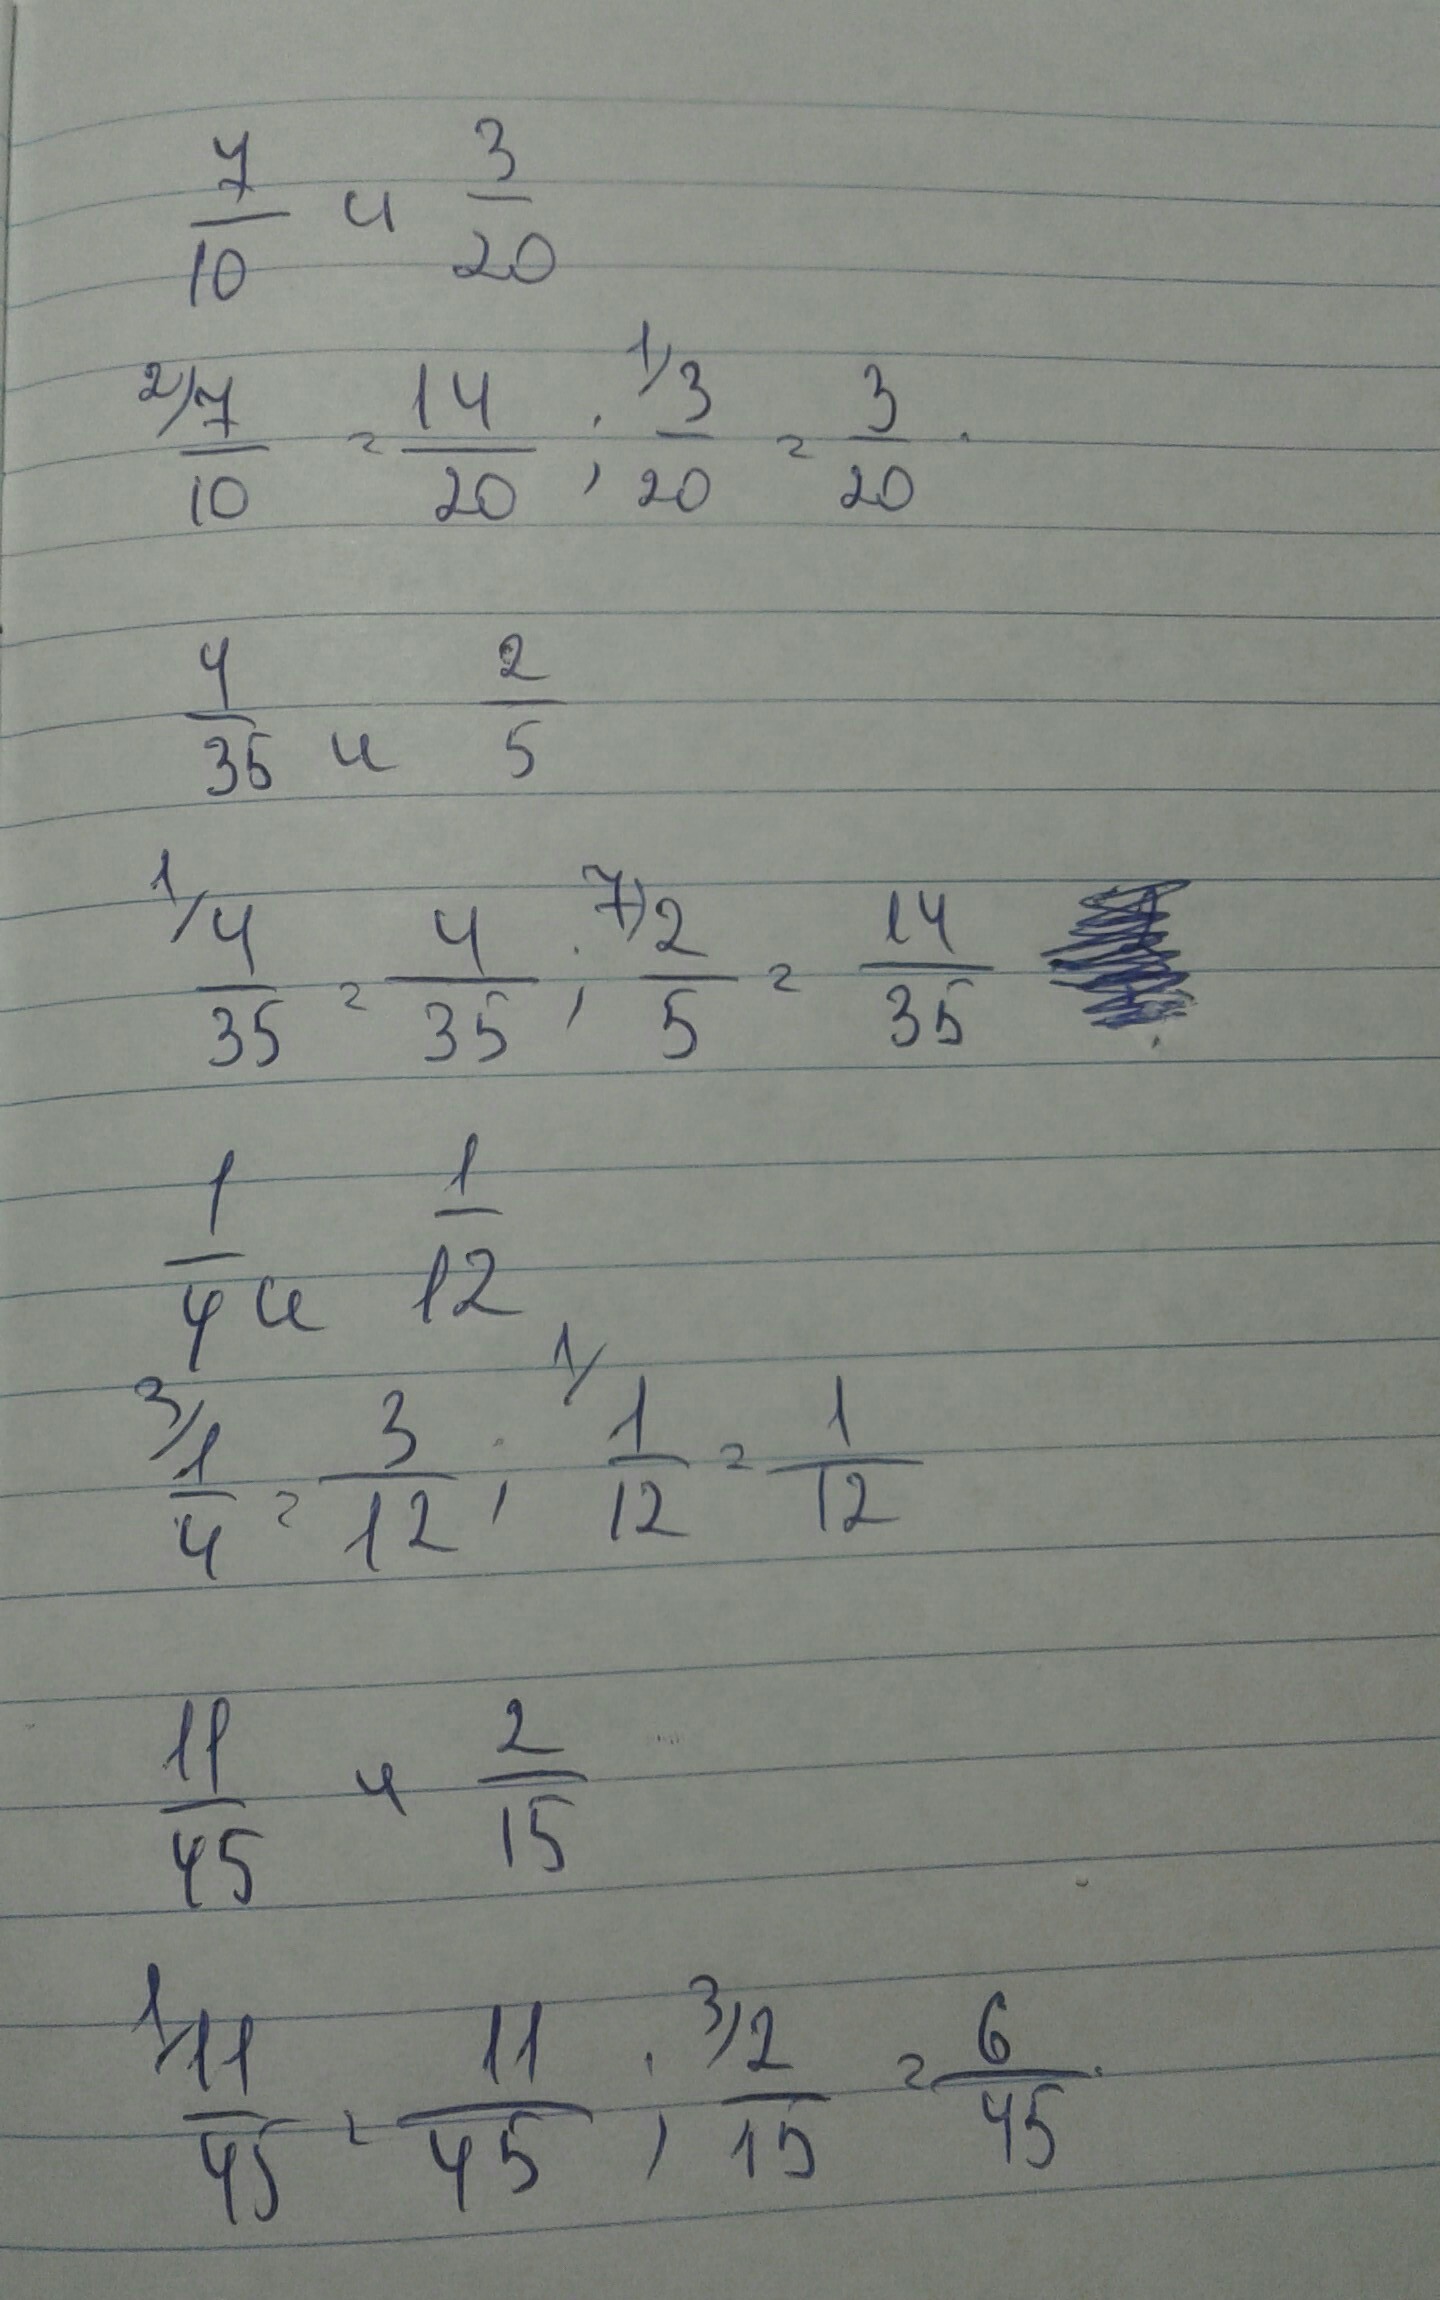 7/10 и 3/20
2/ 7/10 = 14/20 ; 1/ 3/20 = 3/20 .
4/35 и 2/5
1/ 4/35 = 4/35 ; 7/ 2/5 = 14/35 .
1/4 и 1/12
3/ 1/4 = 3/12 ; 1/ 1/12 = 1/12
11/45 и 2/15
1/ 11/45 = 11/45 ; 3/ 2/15 = 6/45 .